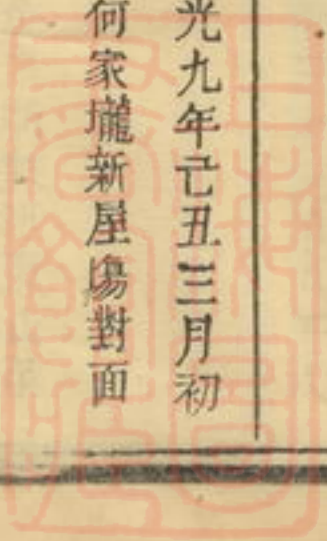 光九年己丑三月初
何家壠新屋塲對面